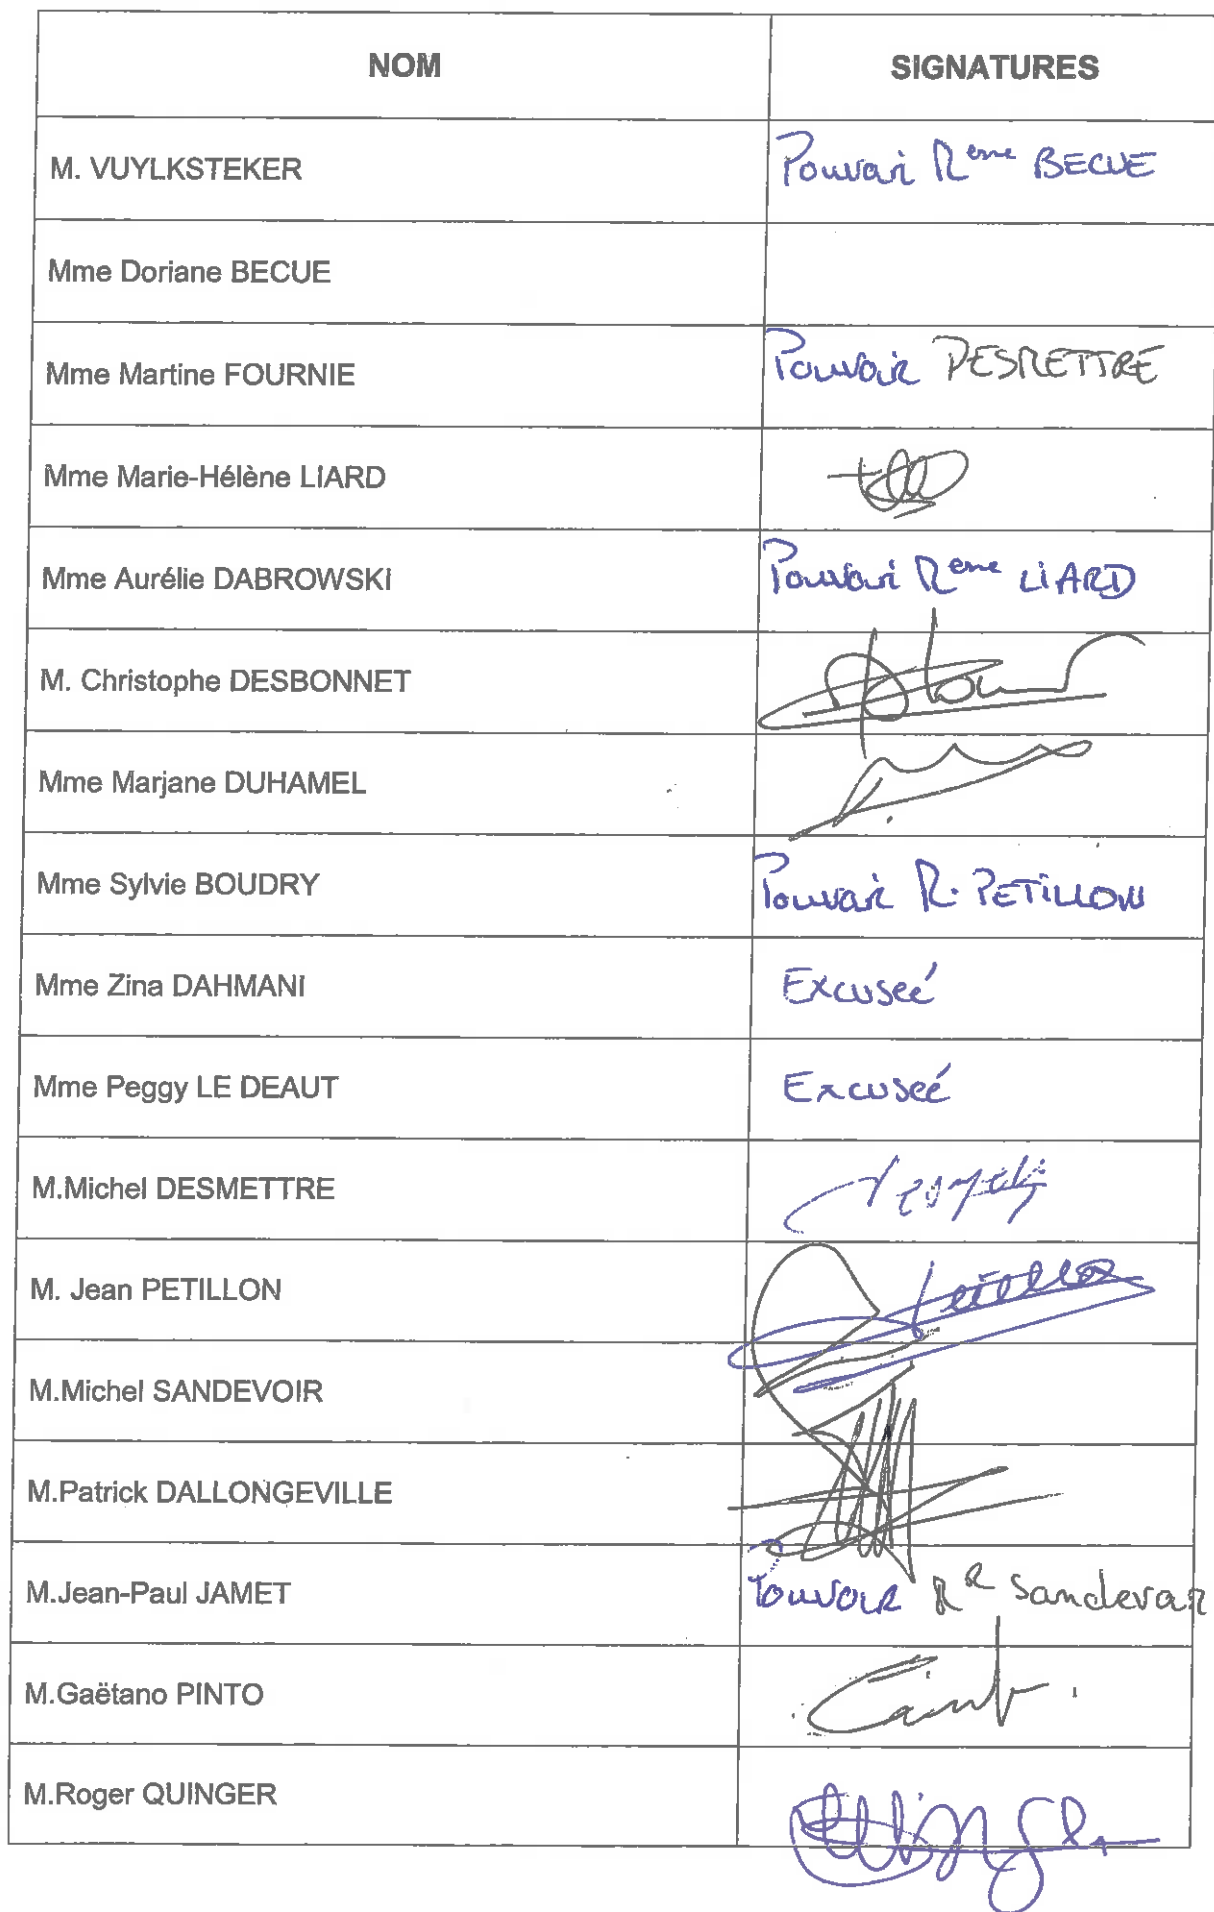 NOM SIGNATURES
M. VUYLKSTEKER Pouvoir Mme BECUE
Mme Doriane BECUE
Mme Martine FOURNIE Pouvoir DESMETTRE
Mme Marie-Hélène LIARD
Mme Aurélie DABROWSKI Pouvoir Mme LIARD
M. Christophe DESBONNET
Mme Marjane DUHAMEL
Mme Sylvie BOUDRY Pouvoir M. PETILLON
Mme Zina DAHMANI Excuseé
Mme Peggy LE DEAUT Excuseé
M.Michel DESMETTRE
M. Jean PETILLON
M.Michel SANDEVOIR
M.Patrick DALLONGEVILLE
M.Jean-Paul JAMET Pouvoir MR Sandevoir
M.Gaëtano PINTO
M.Roger QUINGER